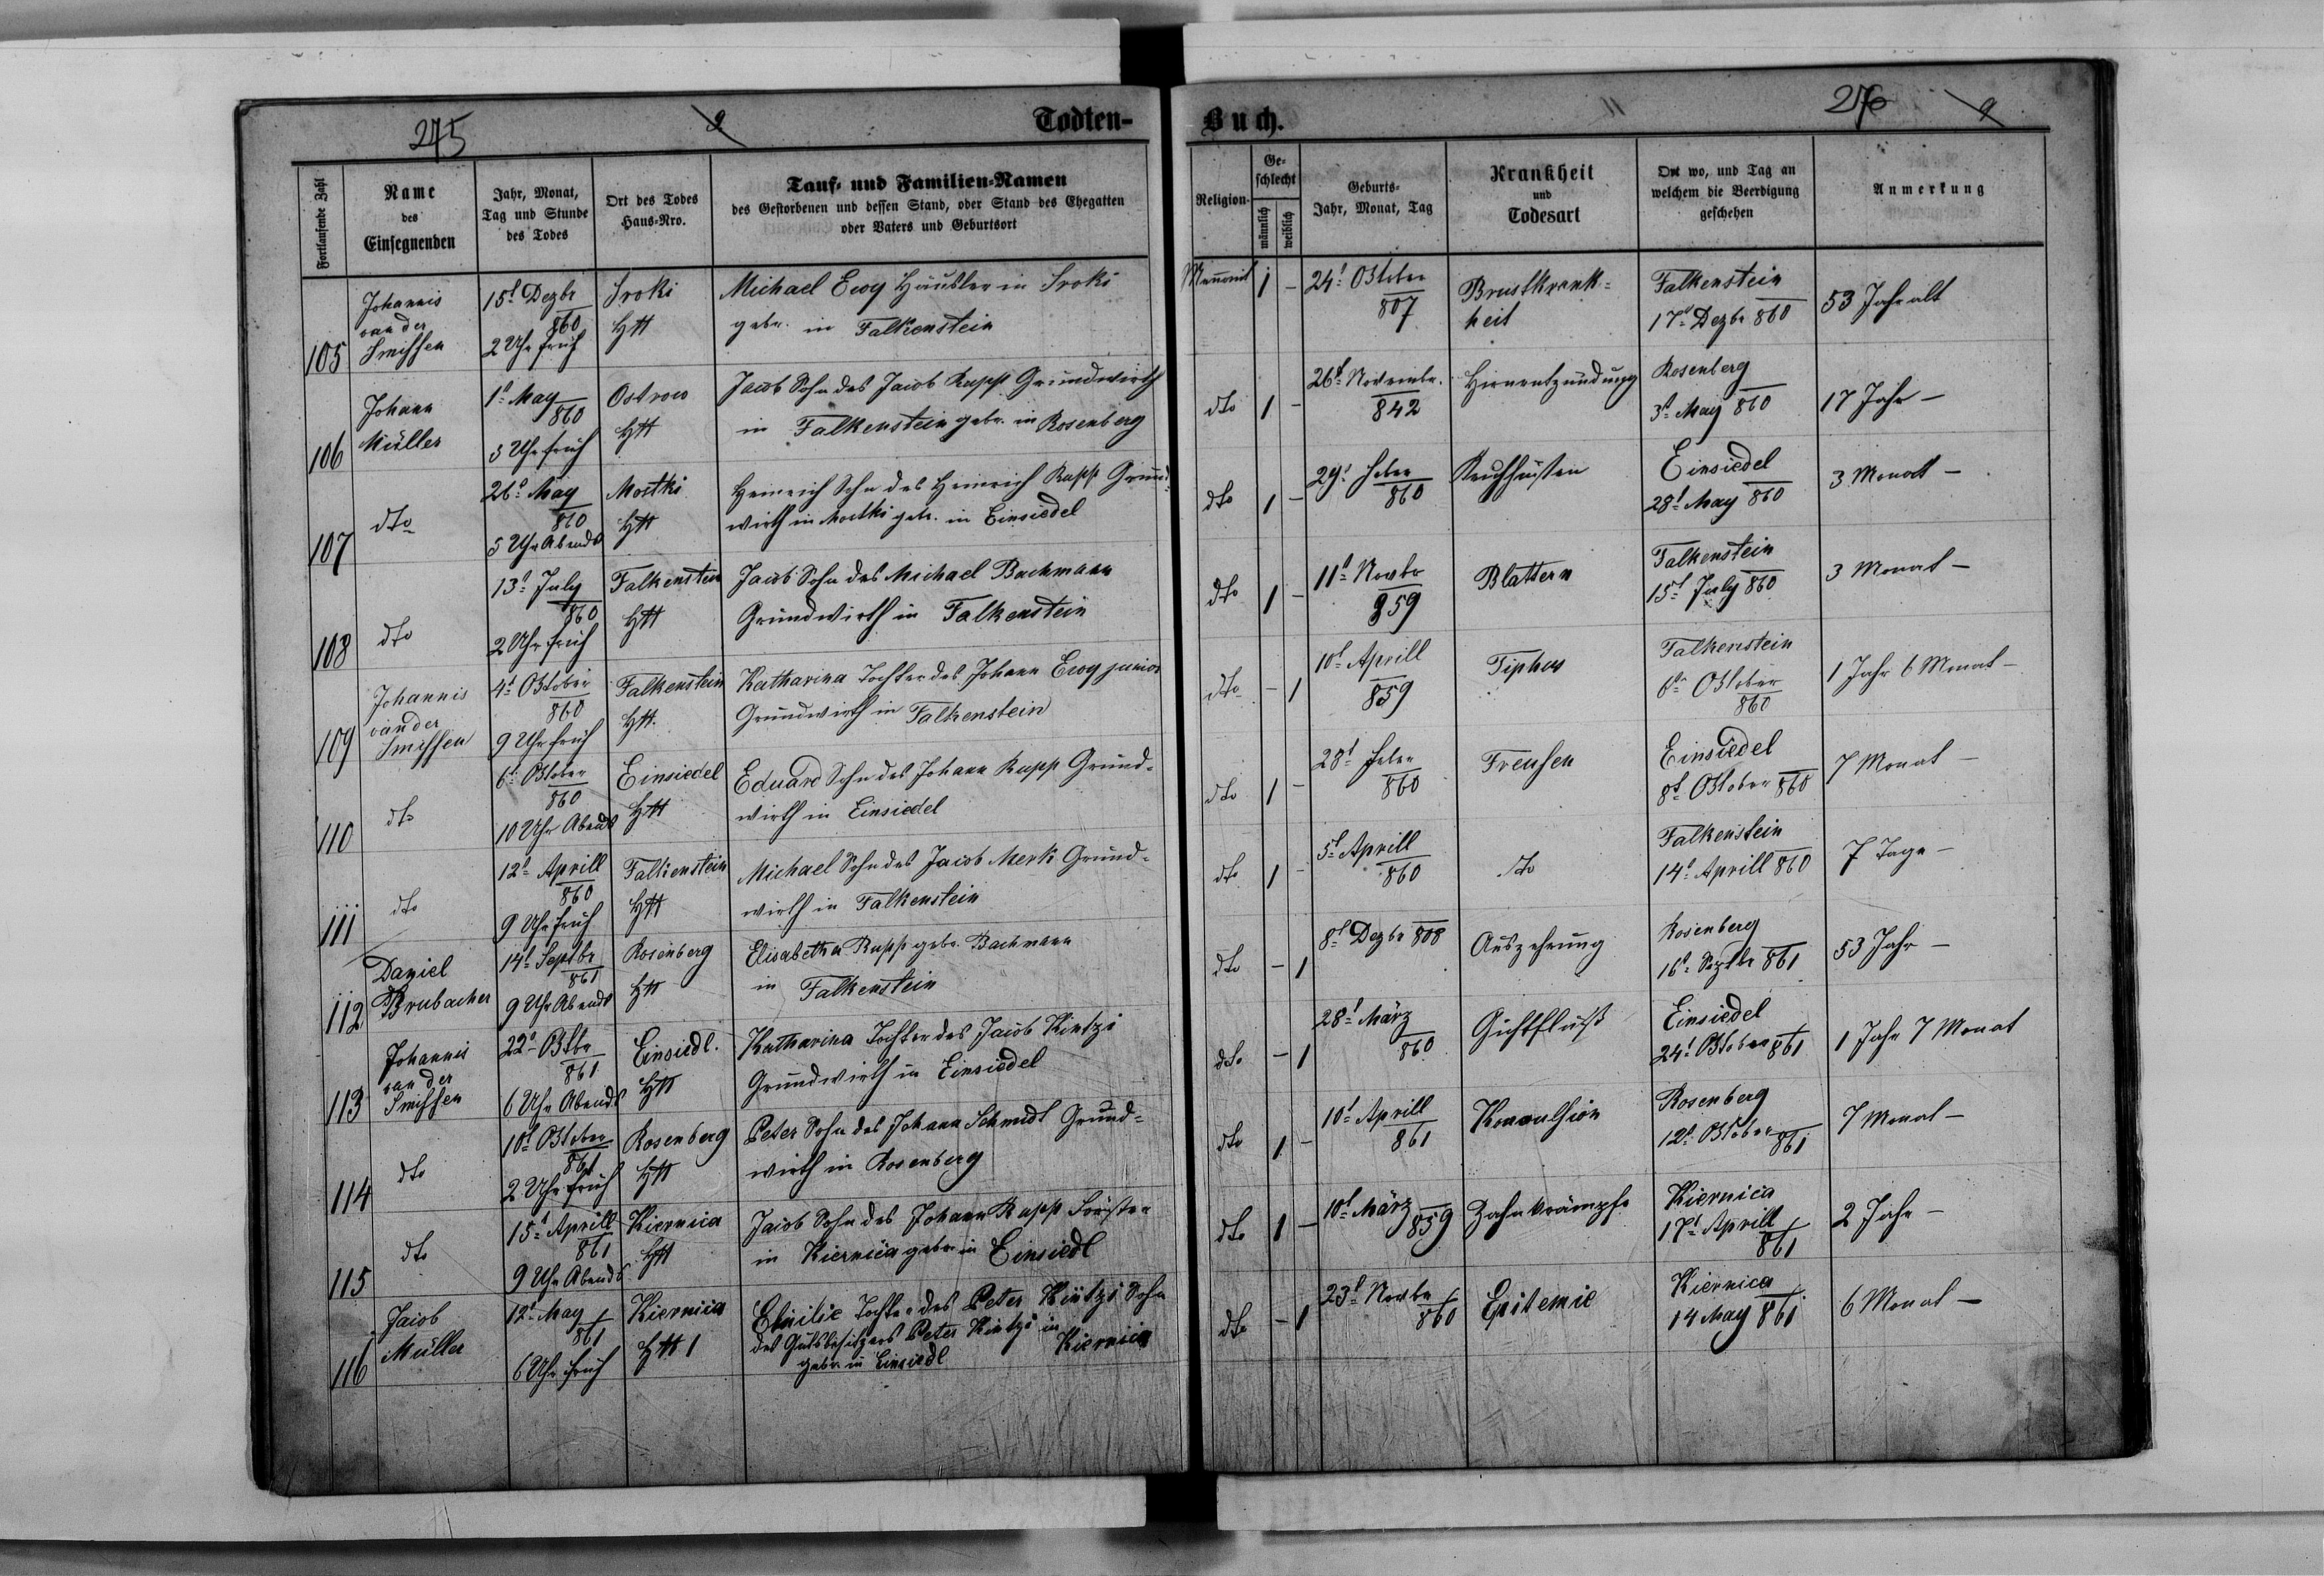 275
9
Todten-
Fortlaufende Zahl
Name
des
Einsegnenden
Jahr, Monat,
Tag und Stunde
des Todes
Ort des Todes
Haus-Nro.
Tauf- und Familien-Namen
des Gestorbenen und dessen Stand, oder Stand des Ehegatten
oder Vaters und Geburtsort
105
Johannis
van der
Smissen
15t Dezbr
860
2 Uhr früh
Sroki
H#
Michael Ewy Häusler in Sroki
gebr. in Falkenstein
106
Johann
Müller
1t May
860
5 Uhr früh
Ostrow
H#
Jacob Sohn des Jacob Rupp Grundwirth
in Falkenstein gebr. in Rosenberg
107
dto
26t May
860
5 Uhr Abends
Mostki
H#
Heinrich Sohn des Heinrich Rupp Grund-
wirth in Mostki gebr. in Einsiedel
108
dto
13t July
860
2 Uhr früh
Falkenstein
H#
Jacob Sohn des Michael Bachmann
Grundwirth in Falkenstein
109
Johannis
van der
Smissen
4t Oktober
860
9 Uhr früh
Falkenstein
H#.
Katharina Tochter des Johann Ewy junior
Grundwirth in Falkenstein
110
dto
6t Oktober
860
10 Uhr Abends
Einsiedel
H#
Eduard Sohn des Johann Rupp Grund-
wirth in Einsiedel
111
dto
12t Aprill
860
9 Uhr früh
Falkenstein
H#
Michael Sohn des Jacob Merk Grund-
wirth in Falkenstein
112
Daniel
Brubacher
14t Septbr
861
9 Uhr Abends
Rosenberg
H#
Elisabetha Rupp gebr. Bachmann
in Falkenstein
113
Johannis
van der
Smissen
22t Oktbr
861
6 Uhr Abends
Einsiedl.
H#
Katharina Tochter des Jacob Kintzi
Grundwirth in Einsiedel
114
dto
10t Oktober
861
2 Uhr früh
Rosenberg
H#
Peter Sohn des Johann Schmidt Grund-
wirth in Rosenberg
115
dto
15t Aprill
861
9 Uhr Abends
Kiernica
H#
Jacob Sohn des Johann Rupp Förster
in Kiernica gebr in Einsiedl
116
Jacob
Müller
12t May
861
6 Uhr früh
Kiernica
H# 1
Emilie Tochter des Peter Kintzi Sohn
des Gutsbesitzers Peter Kintzi in Kiernica
gebr in Einsiedl
Buch.
276
9
Religion
Ge-
schlecht
männlich
weiblich
Geburts-
Jahr, Monat, Tag
Krankheit
und
Todesart
Ort wo, und Tag an
welchem die Beerdigung
geschehen
Anmerkung
Menonit
1 -
24t Oktober
807
Brustkrank-
heit
Falkenstein
17t Dezbr 860
53 Jahr alt
dto
1 -
26t Novembr.
842
Hirnentzündung
Rosenberg
3t May 860
17 Jahr -
dto
1 -
29t Feber
860
Keuchhusten
Einsiedel
28t May 860
3 Monat -
dto
1 -
11t Novbr
859
Blattern
Falkenstein
15t July 860
3 Monat -
dto
- 1
10t Aprill
859
Tiphus
Falkenstein
6t Oktober
860
1 Jahr 6 Monat -
dto
1 -
28t Feber
860
Freusen
Einsiedel
8t Oktober 860
7 Monat -
dto
1 -
5t Aprill
860
dto
Falkenstein
14t Aprill 860
7 Tage -
dto
- 1
8t Dezbr 808
Auszehrung
Rosenberg
16t Septbr 861
53 Jahr -
dto
- 1
28t März
860
Gichtfluß
Einsiedel
24t Oktober 861
1 Jahr 7 Monat
dto
1 -
10t Aprill
861
Konvulsion
Rosenberg
12t Oktober
861
7 Monat -
dto
1 -
10t März
859
Zahnkrämpfe
Kiernica
17t Aprill
861
2 Jahr -
dto
- 1
23t Novbr
860
Epitemie
Kiernica
14 May 861
6 Monat -